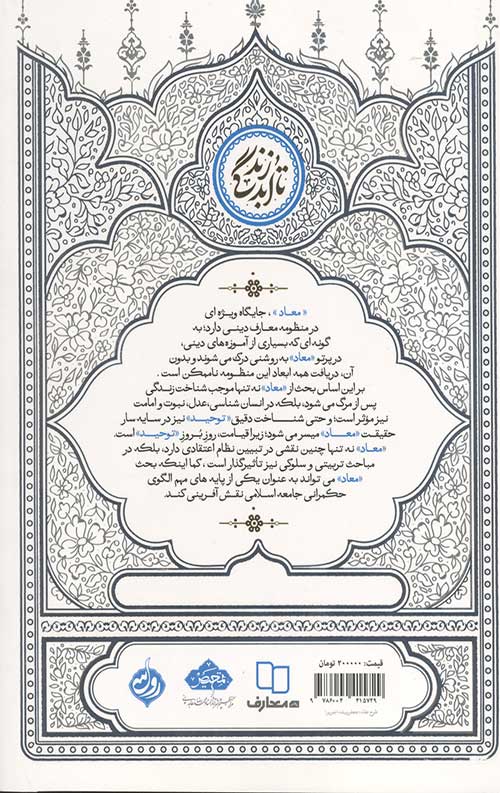 زندگی
تا ابدیت
«معاد»، جایگاه ویژه ای
در منظومه معارف دینی دارد؛ به
گونه ای که بسیاری از آموزه های دینی،
در پرتو «معاد» به روشنی درک می شوند و بدون
آن، دریافت همه ابعاد این منظومه ناممکن است.
بر این اساس بحث از «معاد» نه تنها موجب شناخت زندگی
پس از مرگ می شود، بلکه در انسان شناسی، عدل، نبوت و امامت
نیز مؤثر است؛ و حتی شناخت دقیق «توحید» نیز در سایه سار
حقیقت «معاد» میسر می شود؛ زیرا قیامت، روزِ بُروزِ «توحید» است.
«معاد» نه تنها چنین نقشی در تبیین نظام اعتقادی دارد، بلکه در
مباحث تربیتی و سلوکی نیز تأثیرگذار است، کما اینکه بحث
«معاد» می تواند به عنوان یکی از پایه های مهم الگوی
حکمرانی جامعه اسلامی نقش آفرینی کند.
قیمت: ۲۰۰۰۰۰ تومان
معارف